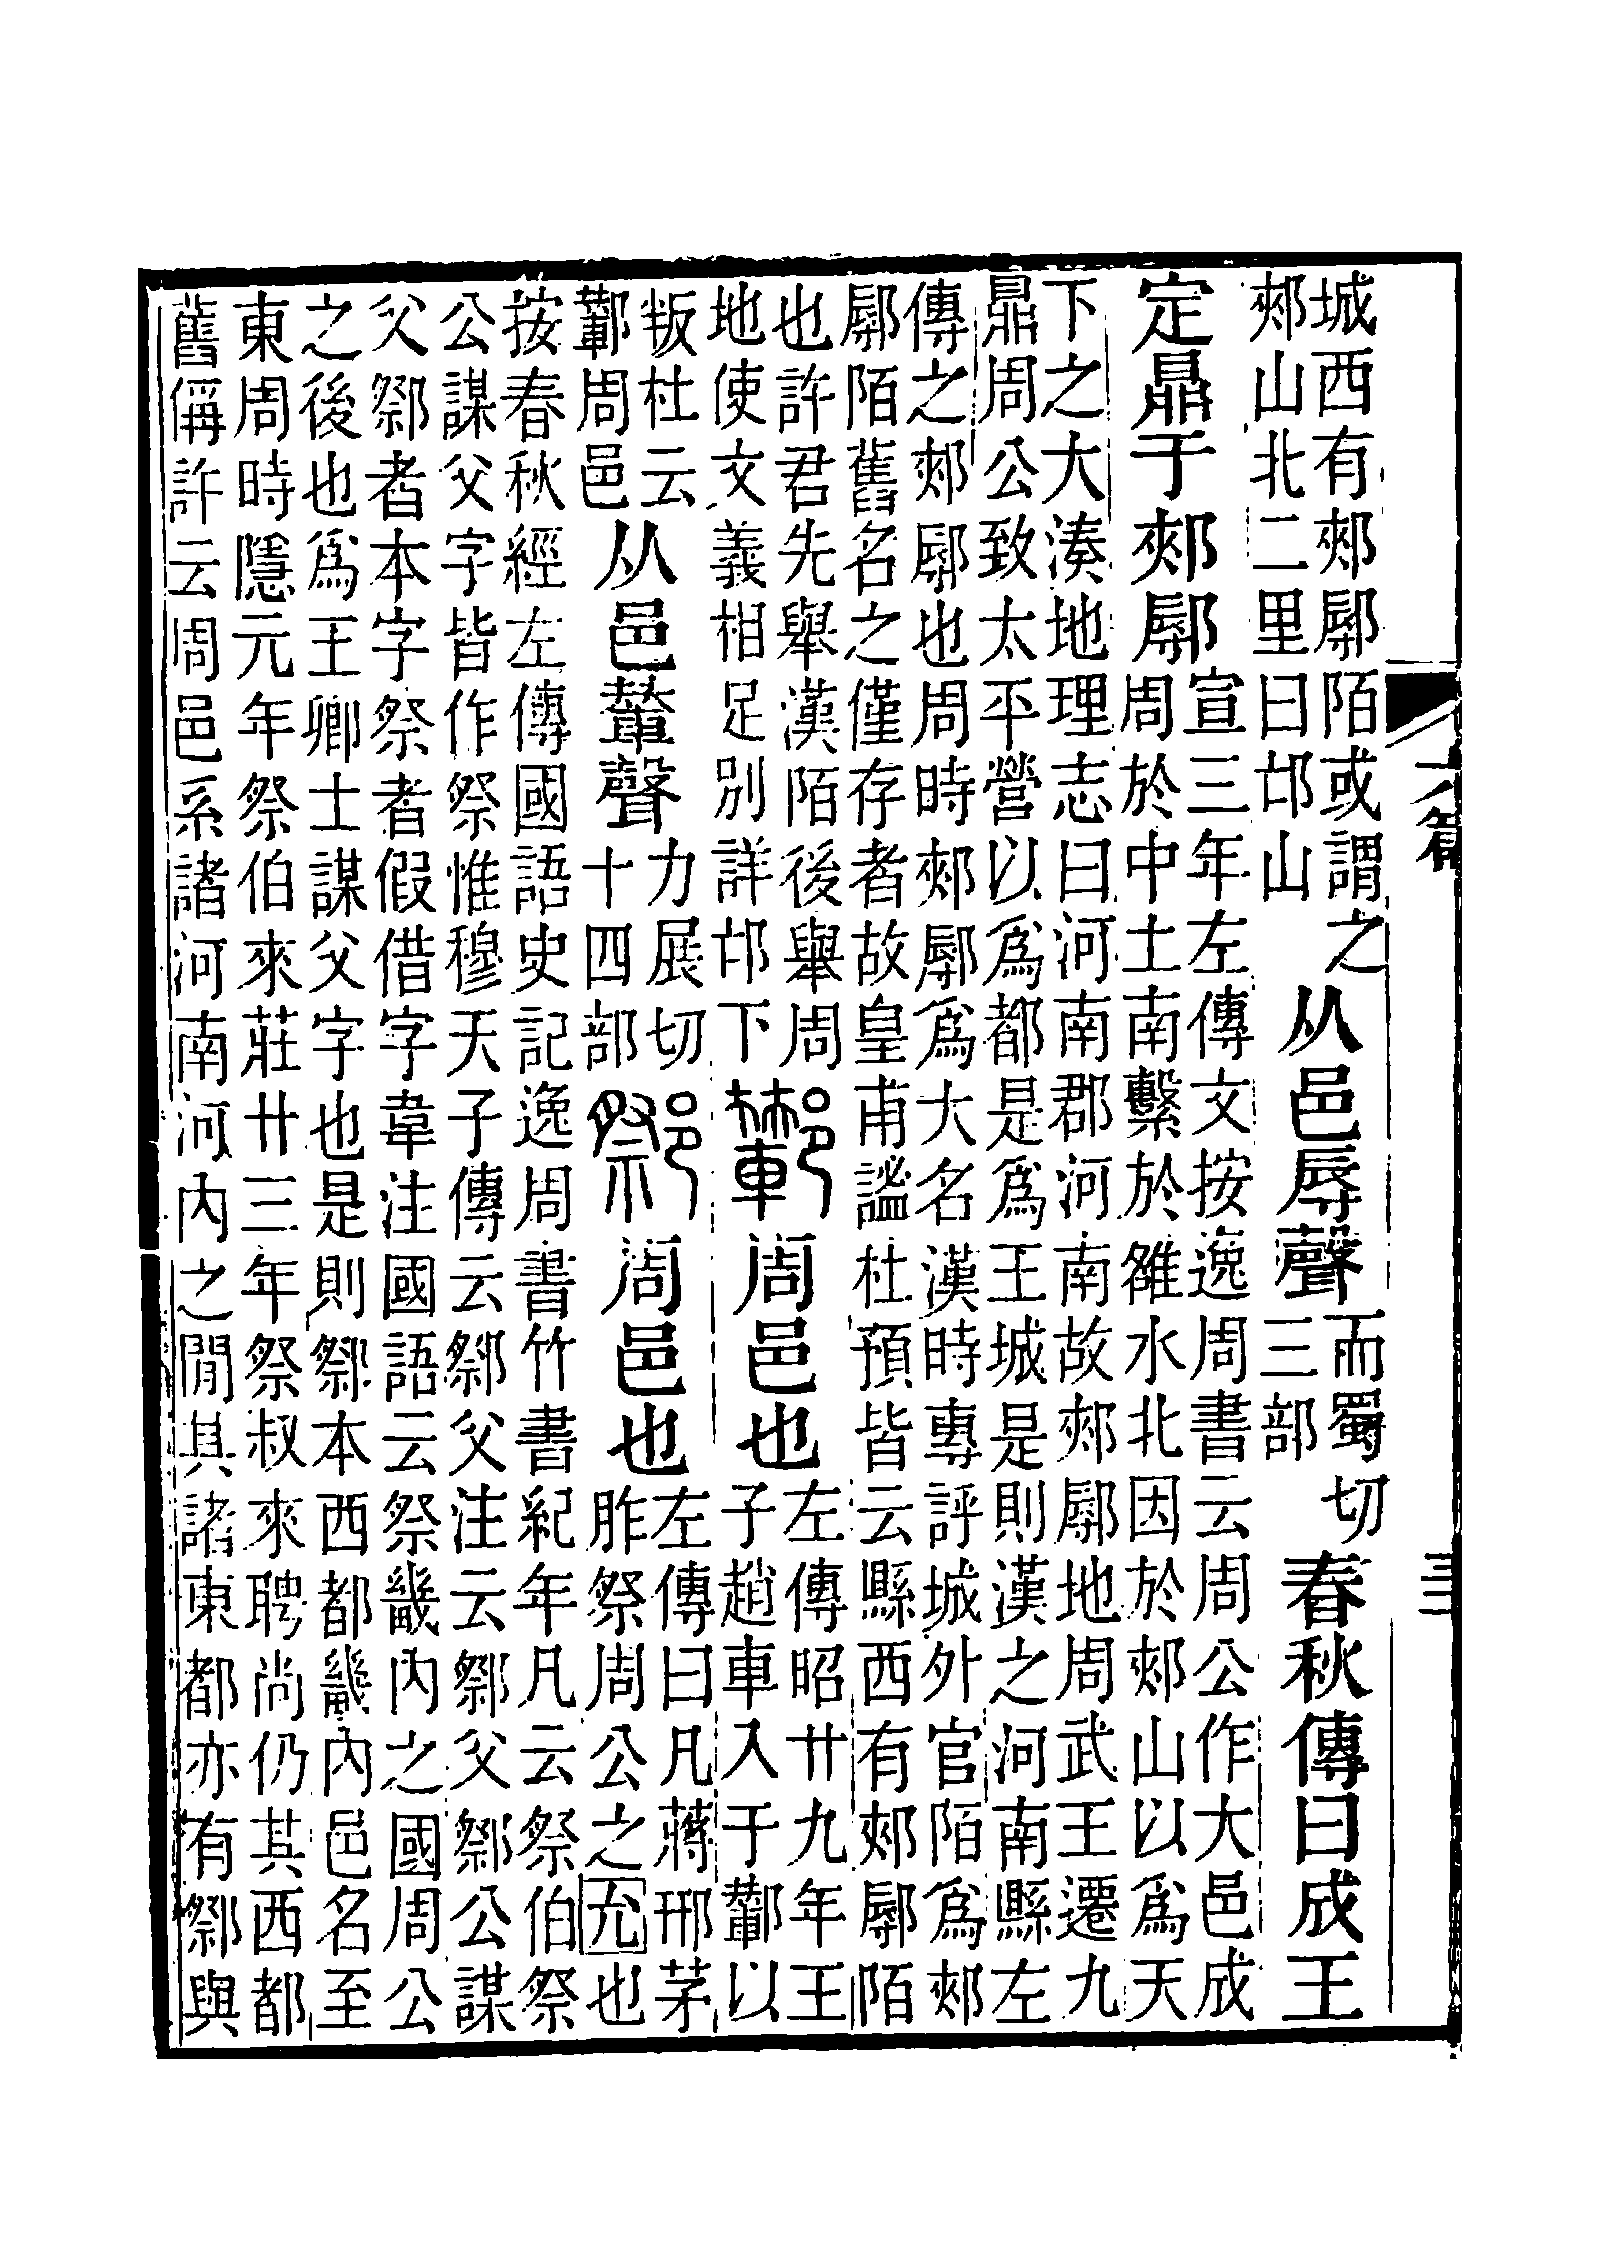 城西有郟鄏陌或謂之郟山北二里曰邙山从邑辱聲而蜀切三部春秋傳曰成王
定鼎于郟鄏宣三年左傳文按逸周書云周公作大邑成周於中土南繫於雒水北因於郟山以爲天
下之大湊地理志曰河南郡河南故郟鄏地周武王遷九鼎周公致太平營以爲都是爲王城是則漢之河南縣左
傳之郟鄏也周時郟鄏爲大名漢時專評城外官陌爲郟鄏陌舊名之僅存者故皇甫謐杜預皆云縣西有郟鄏陌
也許君先舉漢陌後舉周地使文義相足別詳邙下鄻周邑也左傳昭廿九年王子趙車入于鄻以
叛杜云鄻周邑从邑輦聲力展切十四部周邑也左傳曰凡蔣邢茅胙祭周公之允也
按春秋經左傳國語史記逸周書竹書紀年凡云祭伯祭公謀父字皆作祭惟穆天子傳云父注云父公謀
父者本字祭者假借字韋注國語云祭畿內之國周公之後也爲王卿士謀父字也是則本西都畿內邑名至
東周時隱元年祭伯來莊廿三年祭叔來聘尚仍其西都舊偁許云周邑系諸河南河內之閒其諸東都亦有與
六篇
三